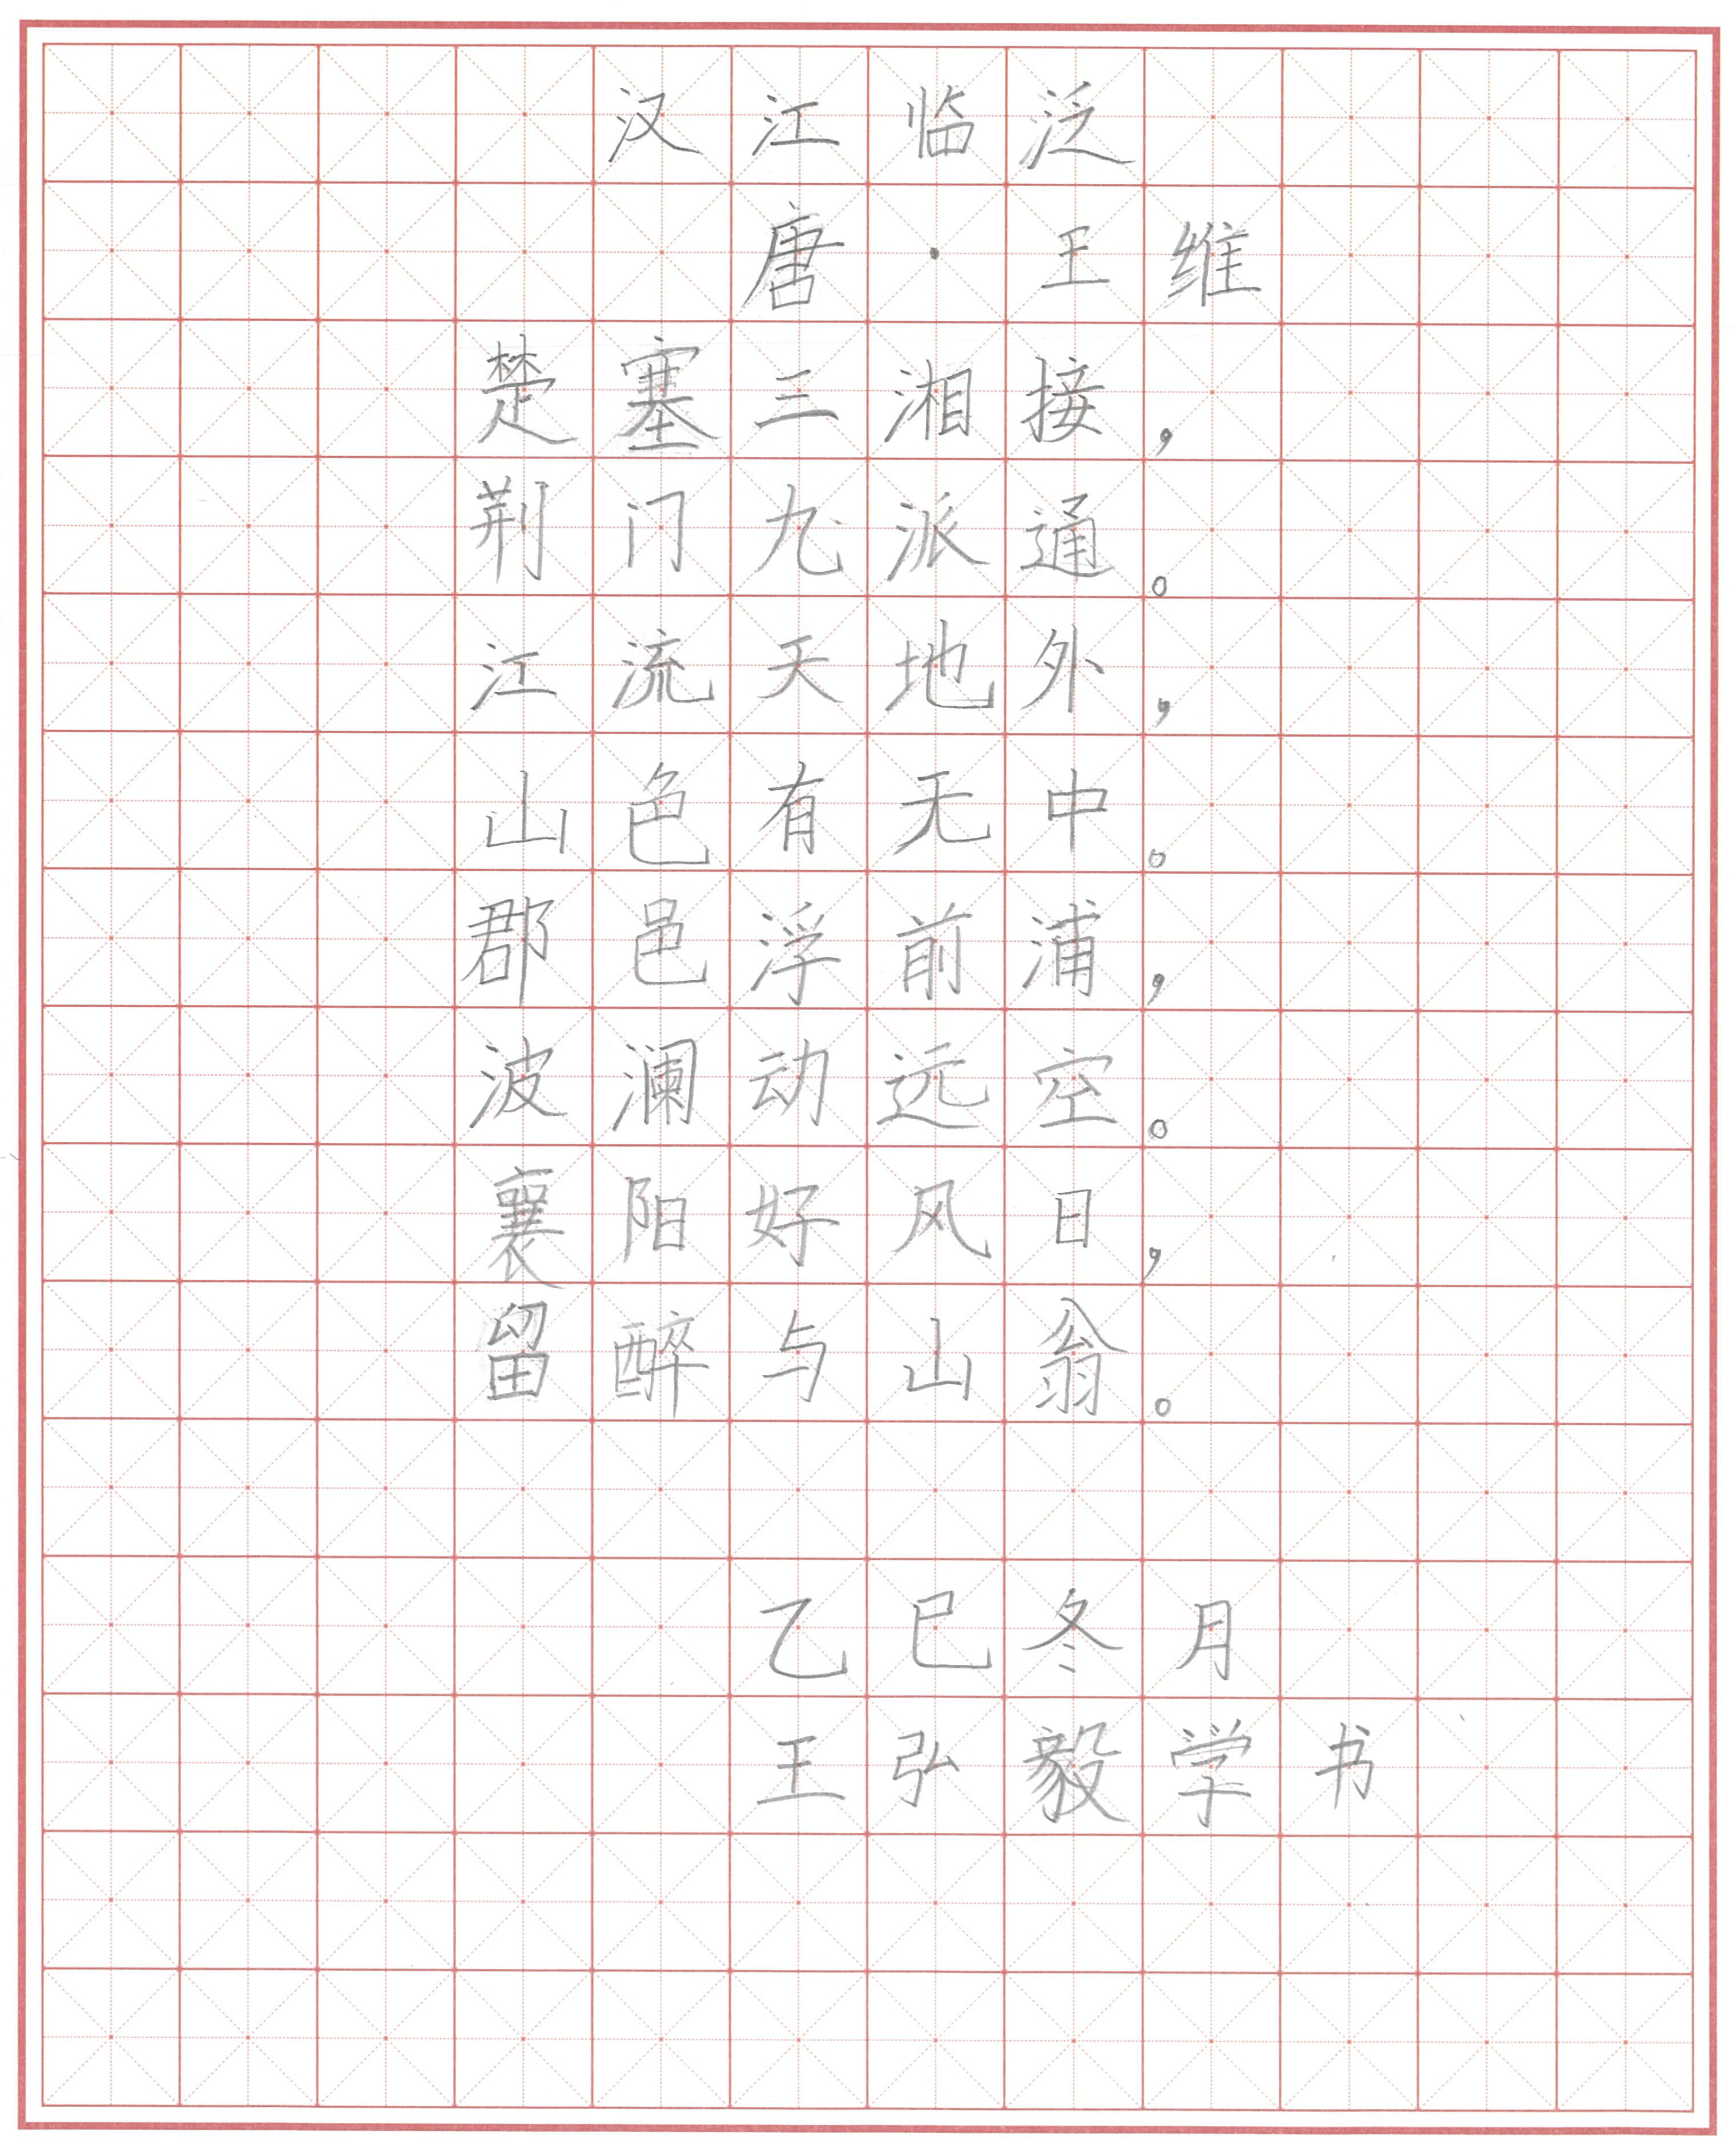 汉江临泛
唐·王维
楚塞三湘接，
荆门九派通。
江流天地外，
山色有无中。
郡邑浮前浦，
波澜动远空。
襄阳好风日，
留醉与山翁。
乙巳冬月
王弘毅学书